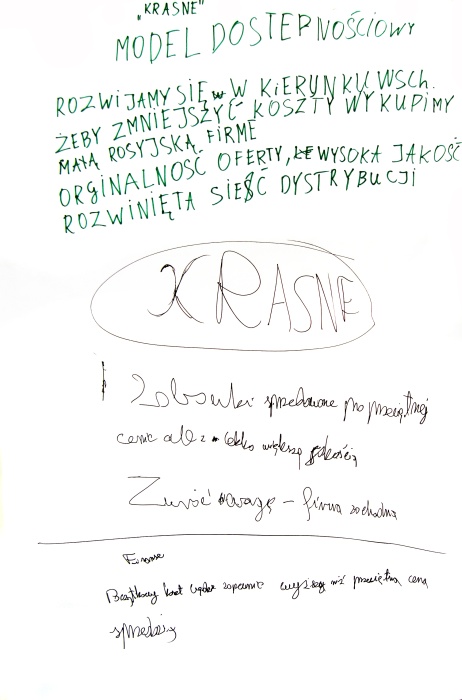 "KRASNE"
MODEL DOSTĘPNOŚCIOWY
ROZWIJAMY SIĘ W KIERUNKU WSCH.
ŻEBY ZMNIEJSZYĆ KOSZTY WYKUPIMY
MAŁĄ ROSYJSKĄ FIRMĘ
ORGINALNOŚĆ OFERTY, WYSOKA JAKOŚĆ
ROZWINIĘTA SIEŚĆ DYSTRYBUCJI
KRASNE
sprzedawane po przeciętnej
cenie ale z lekko większą jakością
Zwróć uwagę - firma zachodnia
Finanse
koszt będzie zapewnie wyższy niż przeciętna cena
sprzedaży